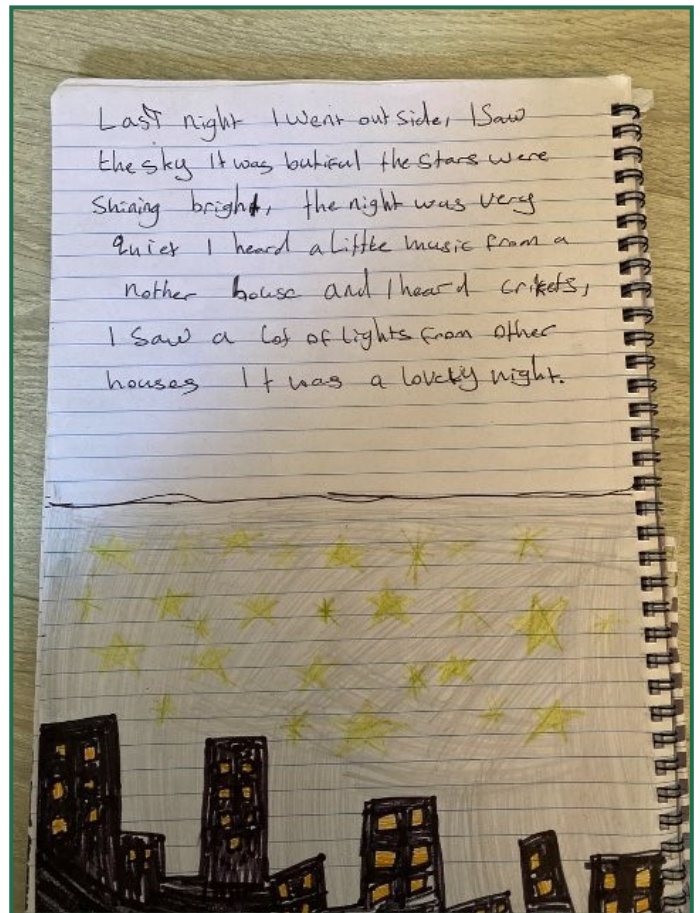 Last night I went out side, I saw
the sky It was butiful the stars were
shining bright, the night was very
quiet I heard a little music from a
nother house and I heard crikets,
I saw a lot of lights from other
houses It was a lovely night.